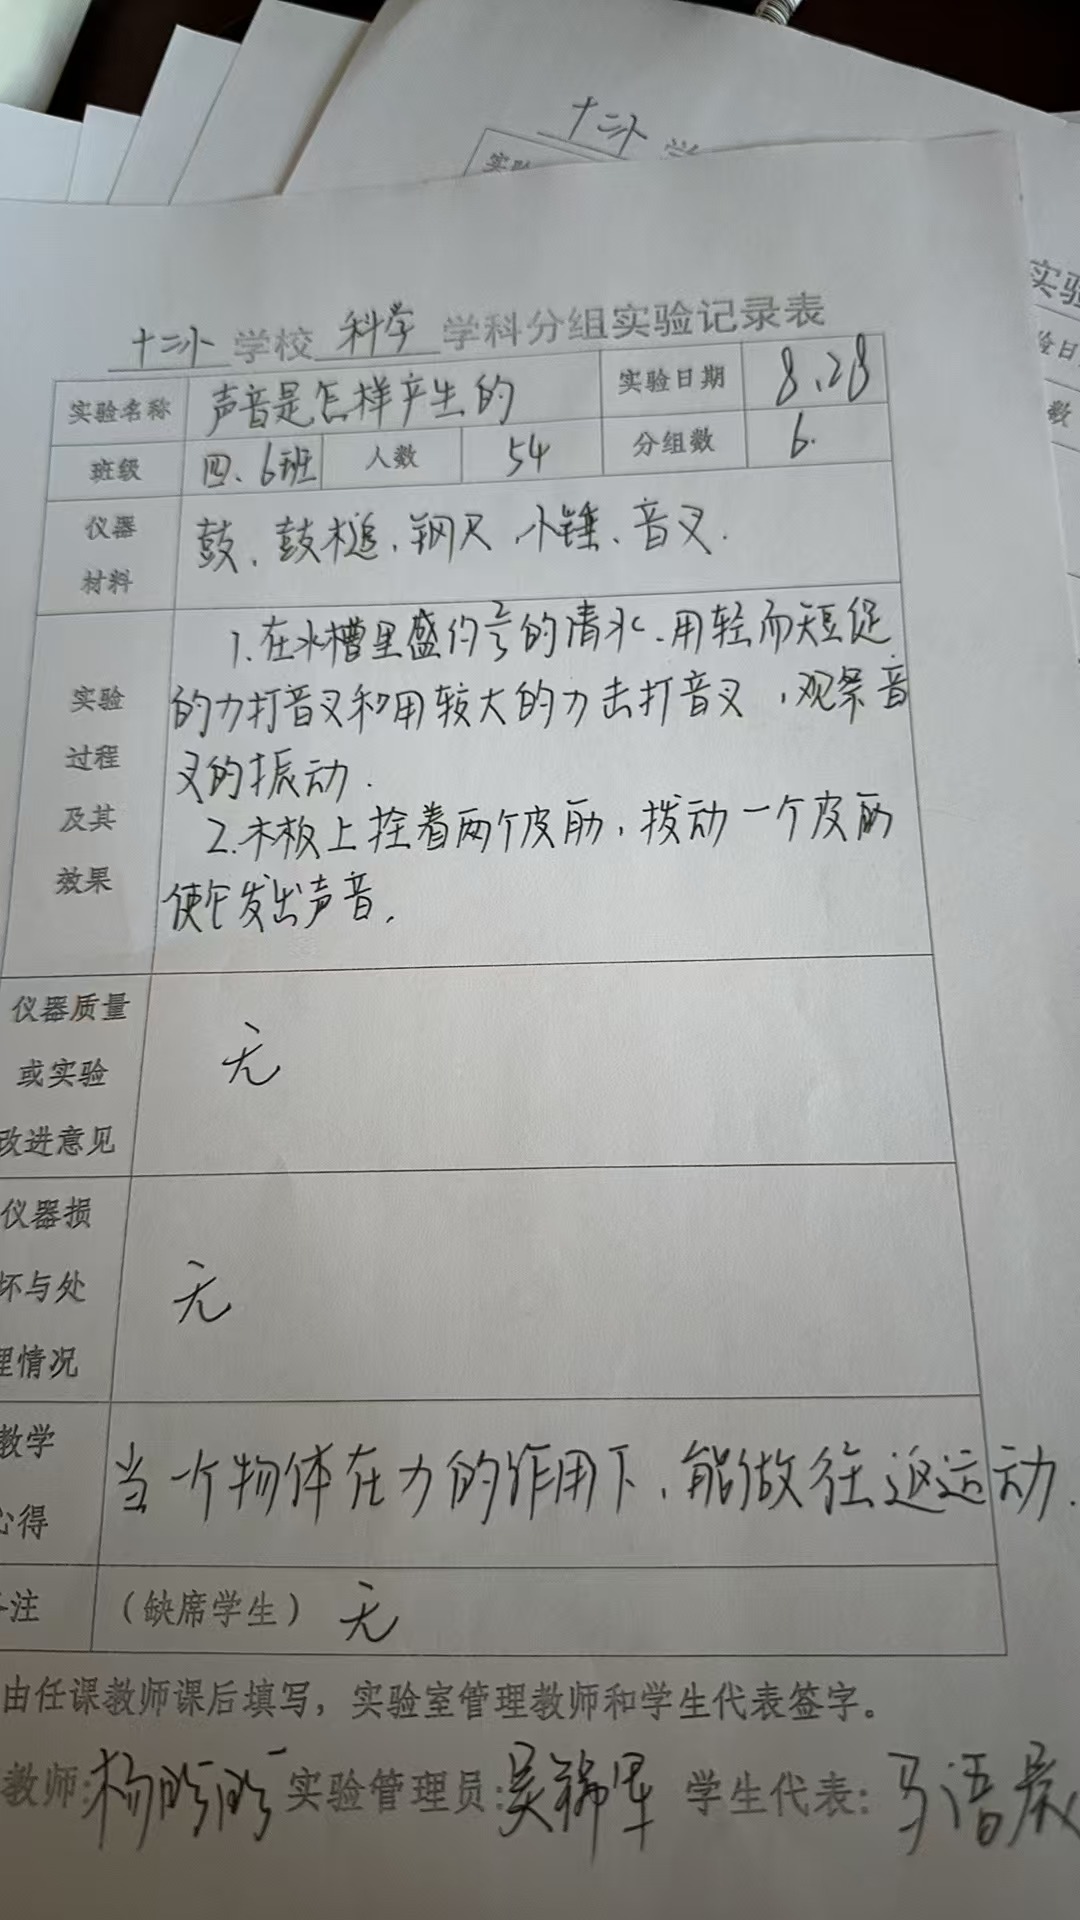 十二小 学
实验
十二小 学校 科学 学科分组实验记录表
实验名称 声音是怎样产生的 实验日期 8.28
班级 四.6班 人数 54 分组数 6.
仪器材料 鼓、鼓槌、钢尺、小锤、音叉.
实验过程及其效果
1.在水槽里盛约2/3的清水、用轻而短促
的力打音叉和用较大的力击打音叉，观察音
叉的振动.
2.木板上拴着两个皮筋，拨动一个皮筋
使它发出声音.
仪器质量
或实验 无
改进意见
仪器损
坏与处 无
理情况
教学
心得 当一个物体在力的作用下，能做往返运动.
注 （缺席学生） 无
由任课教师课后填写，实验室管理教师和学生代表签字。
教师: 杨 实验管理员: 吴 学生代表: 马语晨